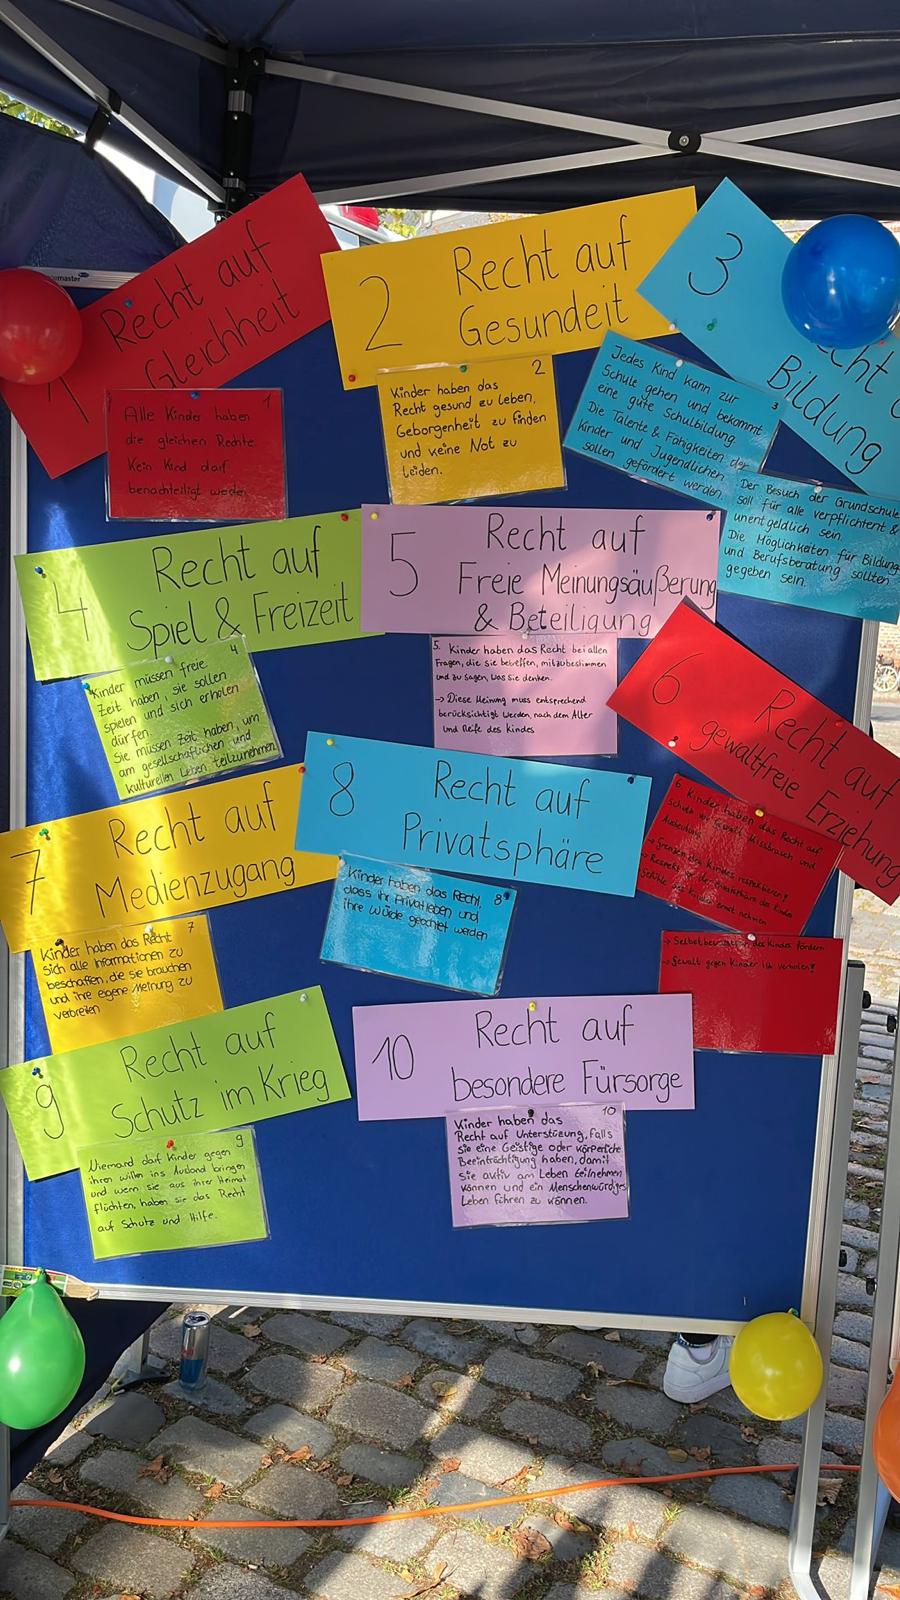 1 Recht auf
Gleichheit
Alle Kinder haben 1
die gleichen Rechte.
Kein Kind darf
benachteiligt werden
2 Recht auf
Gesundeit
Kinder haben das 2
Recht gesund zu leben,
Geborgenheit zu finden
und keine Not zu
leiden.
3
Bildung
Jedes Kind kann zur
Schule gehen und bekommt 3
eine gute Schulbildung.
Die Talente & Fähigkeiten der
Kinder und Jugendlichen
sollen gefördert werden.
Der Besuch der Grundschule
soll für alle verpflichtent &
unentgeldlich sein.
Die Möglichkeiten für Bildung
und Berufsberatung sollten
gegeben sein.
4 Recht auf
Spiel & Freizeit
Kinder müssen freie 4
Zeit haben, sie sollen
spielen und sich erholen
dürfen.
Sie müssen Zeit haben, um
am gesellschaftlichen und
kulturellen Leben teilzunehmen.
5 Recht auf
Freie Meinungsäußerung
& Beteiligung
5. Kinder haben das Recht bei allen
Fragen, die sie betreffen, mitzubestimmen
und zu sagen, was sie denken.
→ Diese Meinung muss entsprechend
berücksichtigt werden, nach dem Alter
und Reife des Kindes
6 Recht auf
gewaltfreie Erziehung
6 Kinder haben das Recht auf
Schutz vor Gewalt, Missbrauch und
Ausbeutung
→ Grenzen des Kindes respektieren!
→ Respekt vor der Privatsphäre des Kindes
Gefühle des Kindes ernst nehmen
→ Selbstbewusstsein des Kindes fördern
→ Gewalt gegen Kinder ist verboten!
7 Recht auf
Medienzugang
Kinder haben das Recht 7
sich alle Informationen zu
beschaffen, die sie brauchen
und ihre eigene Meinung zu
verbreiten
8 Recht auf
Privatsphäre
Kinder haben das Recht, 8
dass ihr Privatleben und
ihre Würde geachtet werden
9 Recht auf
Schutz im Krieg
Niemand darf Kinder gegen 9
ihren willen ins Ausland bringen
und wenn sie aus ihrer Heimat
flüchten, haben sie das Recht
auf Schutz und Hilfe.
10 Recht auf
besondere Fürsorge
Kinder haben das 10
Recht auf Unterstüzung, falls
sie eine Geistige oder körperliche
Beeinträchtigung haben, damit
Sie aktiv am Leben teilnehmen
können und ein Menschenwürdiges
Leben führen zu können.